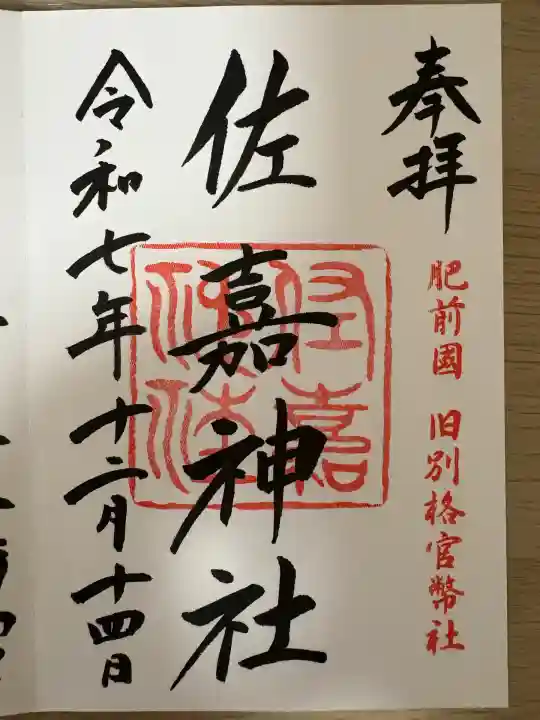 奉拝
肥前國 旧別格官幣社
佐嘉神社
佐嘉神社
令和七年十二月十四日